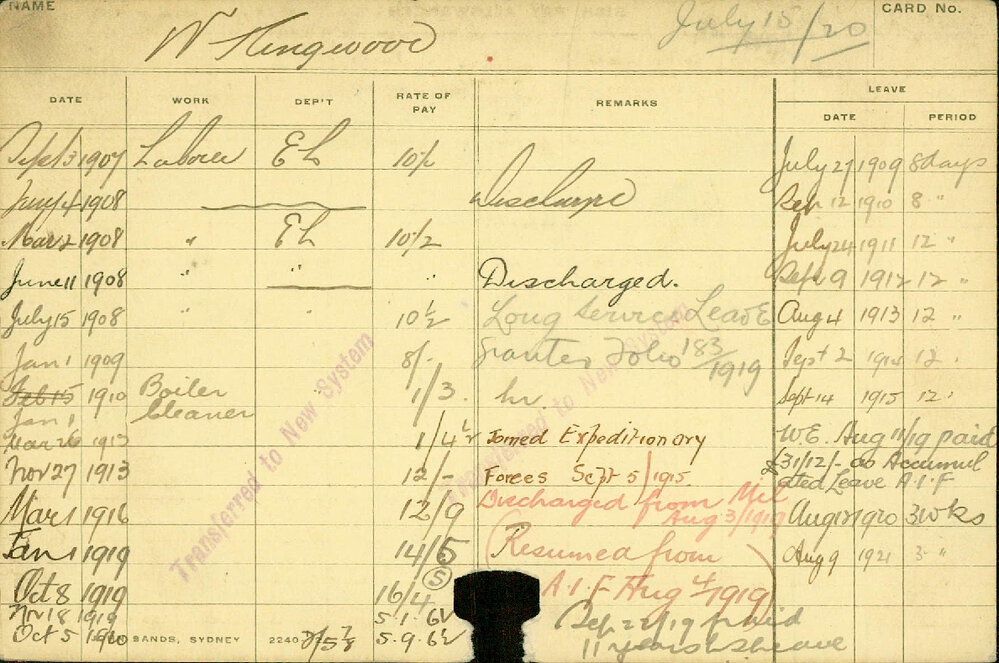 NAME
W Kingwood
July 15/20
CARD No.
DATE WORK DEP'T RATE OF PAY REMARKS LEAVE
DATE PERIOD
Sept 3 1907 Labourer EL 10/- July 27 1909 8 days
Jany 4 1908 Discharged Sep 12 1910 8 "
Mar 2 1908 " EL 10/2 July 24 1911 12 "
June 11 1908 " " " Discharged. Sept 9 1912 12 "
July 15 1908 " " 10½ Long Service Leave Aug 4 1913 12 "
Jan 1 1909 8/- Granted Folio 183/1919 Sept 2 1914 12 "
Feb 15 1910 Boiler Cleaner 1/3 hr Sept 14 1915 12 "
Jan 1
Mar 26 1913 1/4 hr Joined Expeditionary W.E. Aug 11/19 paid
Nov 27 1913 12/- Forces Sept 5/1915 £31/12/- as Accumul
ated Leave A.I.F
Mar 1 1916 12/9 Discharged from Mil Aug 3/1919 Aug 1920 3 wks
Jan 1 1919 14/5 (Resumed from Aug 9 1921 3 "
Oct 8 1919 16/4 A.I.F Aug 4/1919)
Nov 18 1919 5.1.6½ Sep 22/19 paid
Oct 5 1920 5.9.6½ 11 years leave
SANDS, SYDNEY 2240
Transferred to New System
Transferred to New System